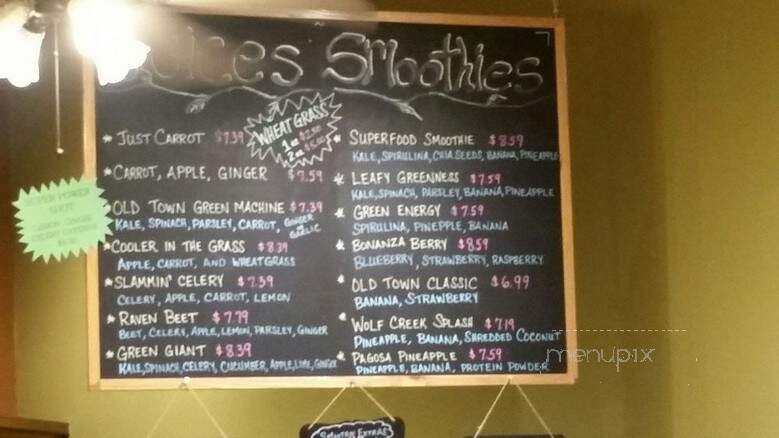 Juices Smoothies
WHEAT GRASS
1 oz $2.50
2 oz
* JUST CARROT $7.39
* CARROT, APPLE, GINGER $7.59
OLD TOWN GREEN MACHINE $7.39
KALE, SPINACH, PARSLEY, CARROT, GINGER
OR
GARLIC
* COOLER IN THE GRASS $8.39
APPLE, CARROT, AND WHEATGRASS
* SLAMMIN' CELERY $7.39
CELERY, APPLE, CARROT, LEMON
* RAVEN BEET $7.79
BEET, CELERY, APPLE, LEMON, PARSLEY, GINGER
* GREEN GIANT $8.39
KALE, SPINACH, CELERY, CUCUMBER, APPLE, LIME, GINGER
* SUPERFOOD SMOOTHIE $8.59
KALE, SPIRULINA, CHIA SEEDS, BANANA, PINEAPPLE
* LEAFY GREENNESS $7.59
KALE, SPINACH, PARSLEY, BANANA, PINEAPPLE
* GREEN ENERGY $7.59
SPIRULINA, PINEAPPLE, BANANA
* BONANZA BERRY $8.59
BLUEBERRY, STRAWBERRY, RASPBERRY
* OLD TOWN CLASSIC $6.99
BANANA, STRAWBERRY
* WOLF CREEK SPLASH $7.19
PINEAPPLE, BANANA, SHREDDED COCONUT
* PAGOSA PINEAPPLE $7.59
PINEAPPLE, BANANA, PROTEIN POWDER
SUPER POWER
SHOT
SMOOTHIE EXTRAS
menupix